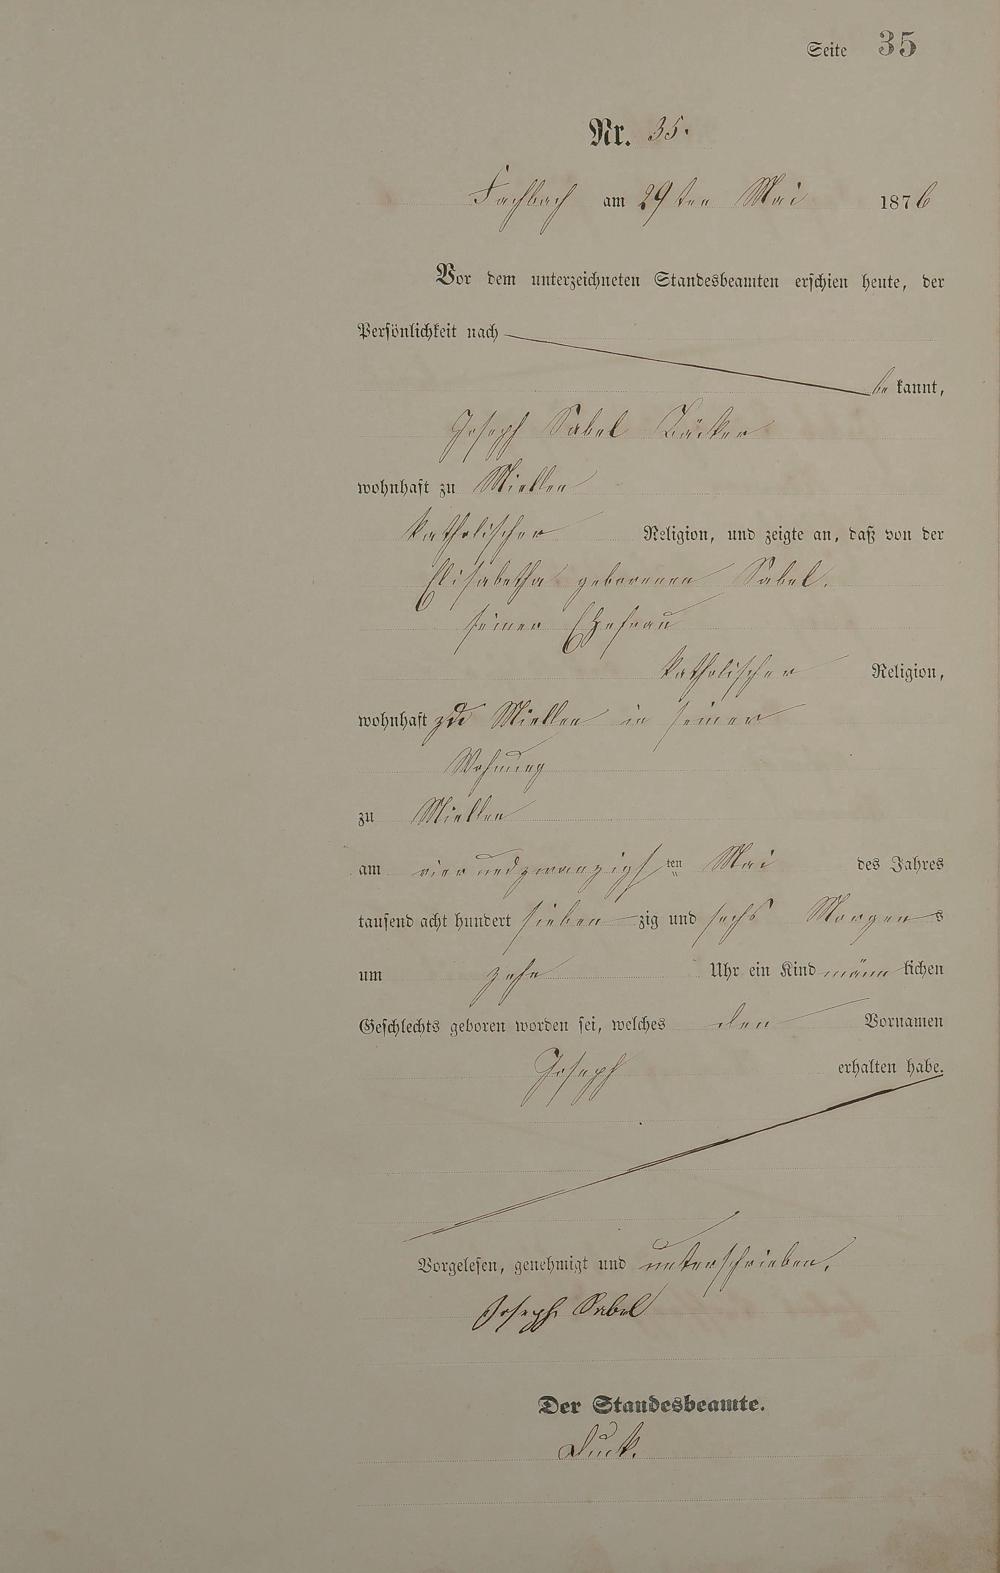 Seite 35
Nr. 35.
Fachbach am 29ten Mai 1876
Vor dem unterzeichneten Standesbeamten erschien heute, der
Persönlichkeit nach
be kannt,
Joseph Sabel Bäcker
wohnhaft zu Miellen
katholischer Religion, und zeigte an, daß von der
Elisabetha geborenen Sabel.
seiner Ehefrau
katholischer Religion,
wohnhaft zu Miellen in seiner
Wohnung
zu Miellen
am vierundzwanzigsten Mai des Jahres
tausend acht hundert siebenzig und sechs Morgens
um zehn Uhr ein Kind männlichen
Geschlechts geboren worden sei, welches den Vornamen
Joseph erhalten habe.
Vorgelesen, genehmigt und unterschrieben.
Joseph Sabel
Der Standesbeamte.